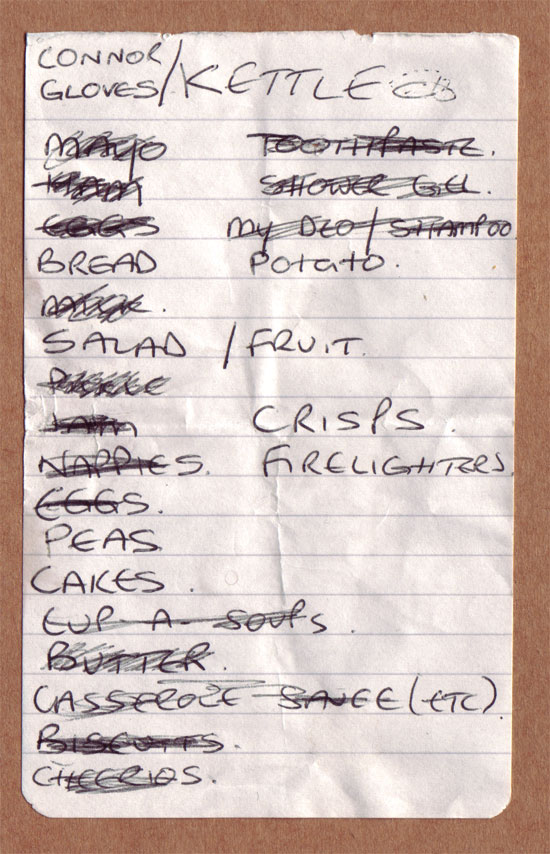 CONNOR
GLOVES / KETTLE
MAYO TOOTHPASTE.
HAM SHOWER GEL.
EGGS MY DEO / SHAMPOO
BREAD POTATO.
MILK.
SALAD / FRUIT.
PICKLE
CRISPS.
NAPPIES. FIRELIGHTERS.
EGGS.
PEAS
CAKES.
CUP-A-SOUPS.
BUTTER.
CASSEROLE SAUCE (ETC)
BISCUITS.
CHEERIOS.